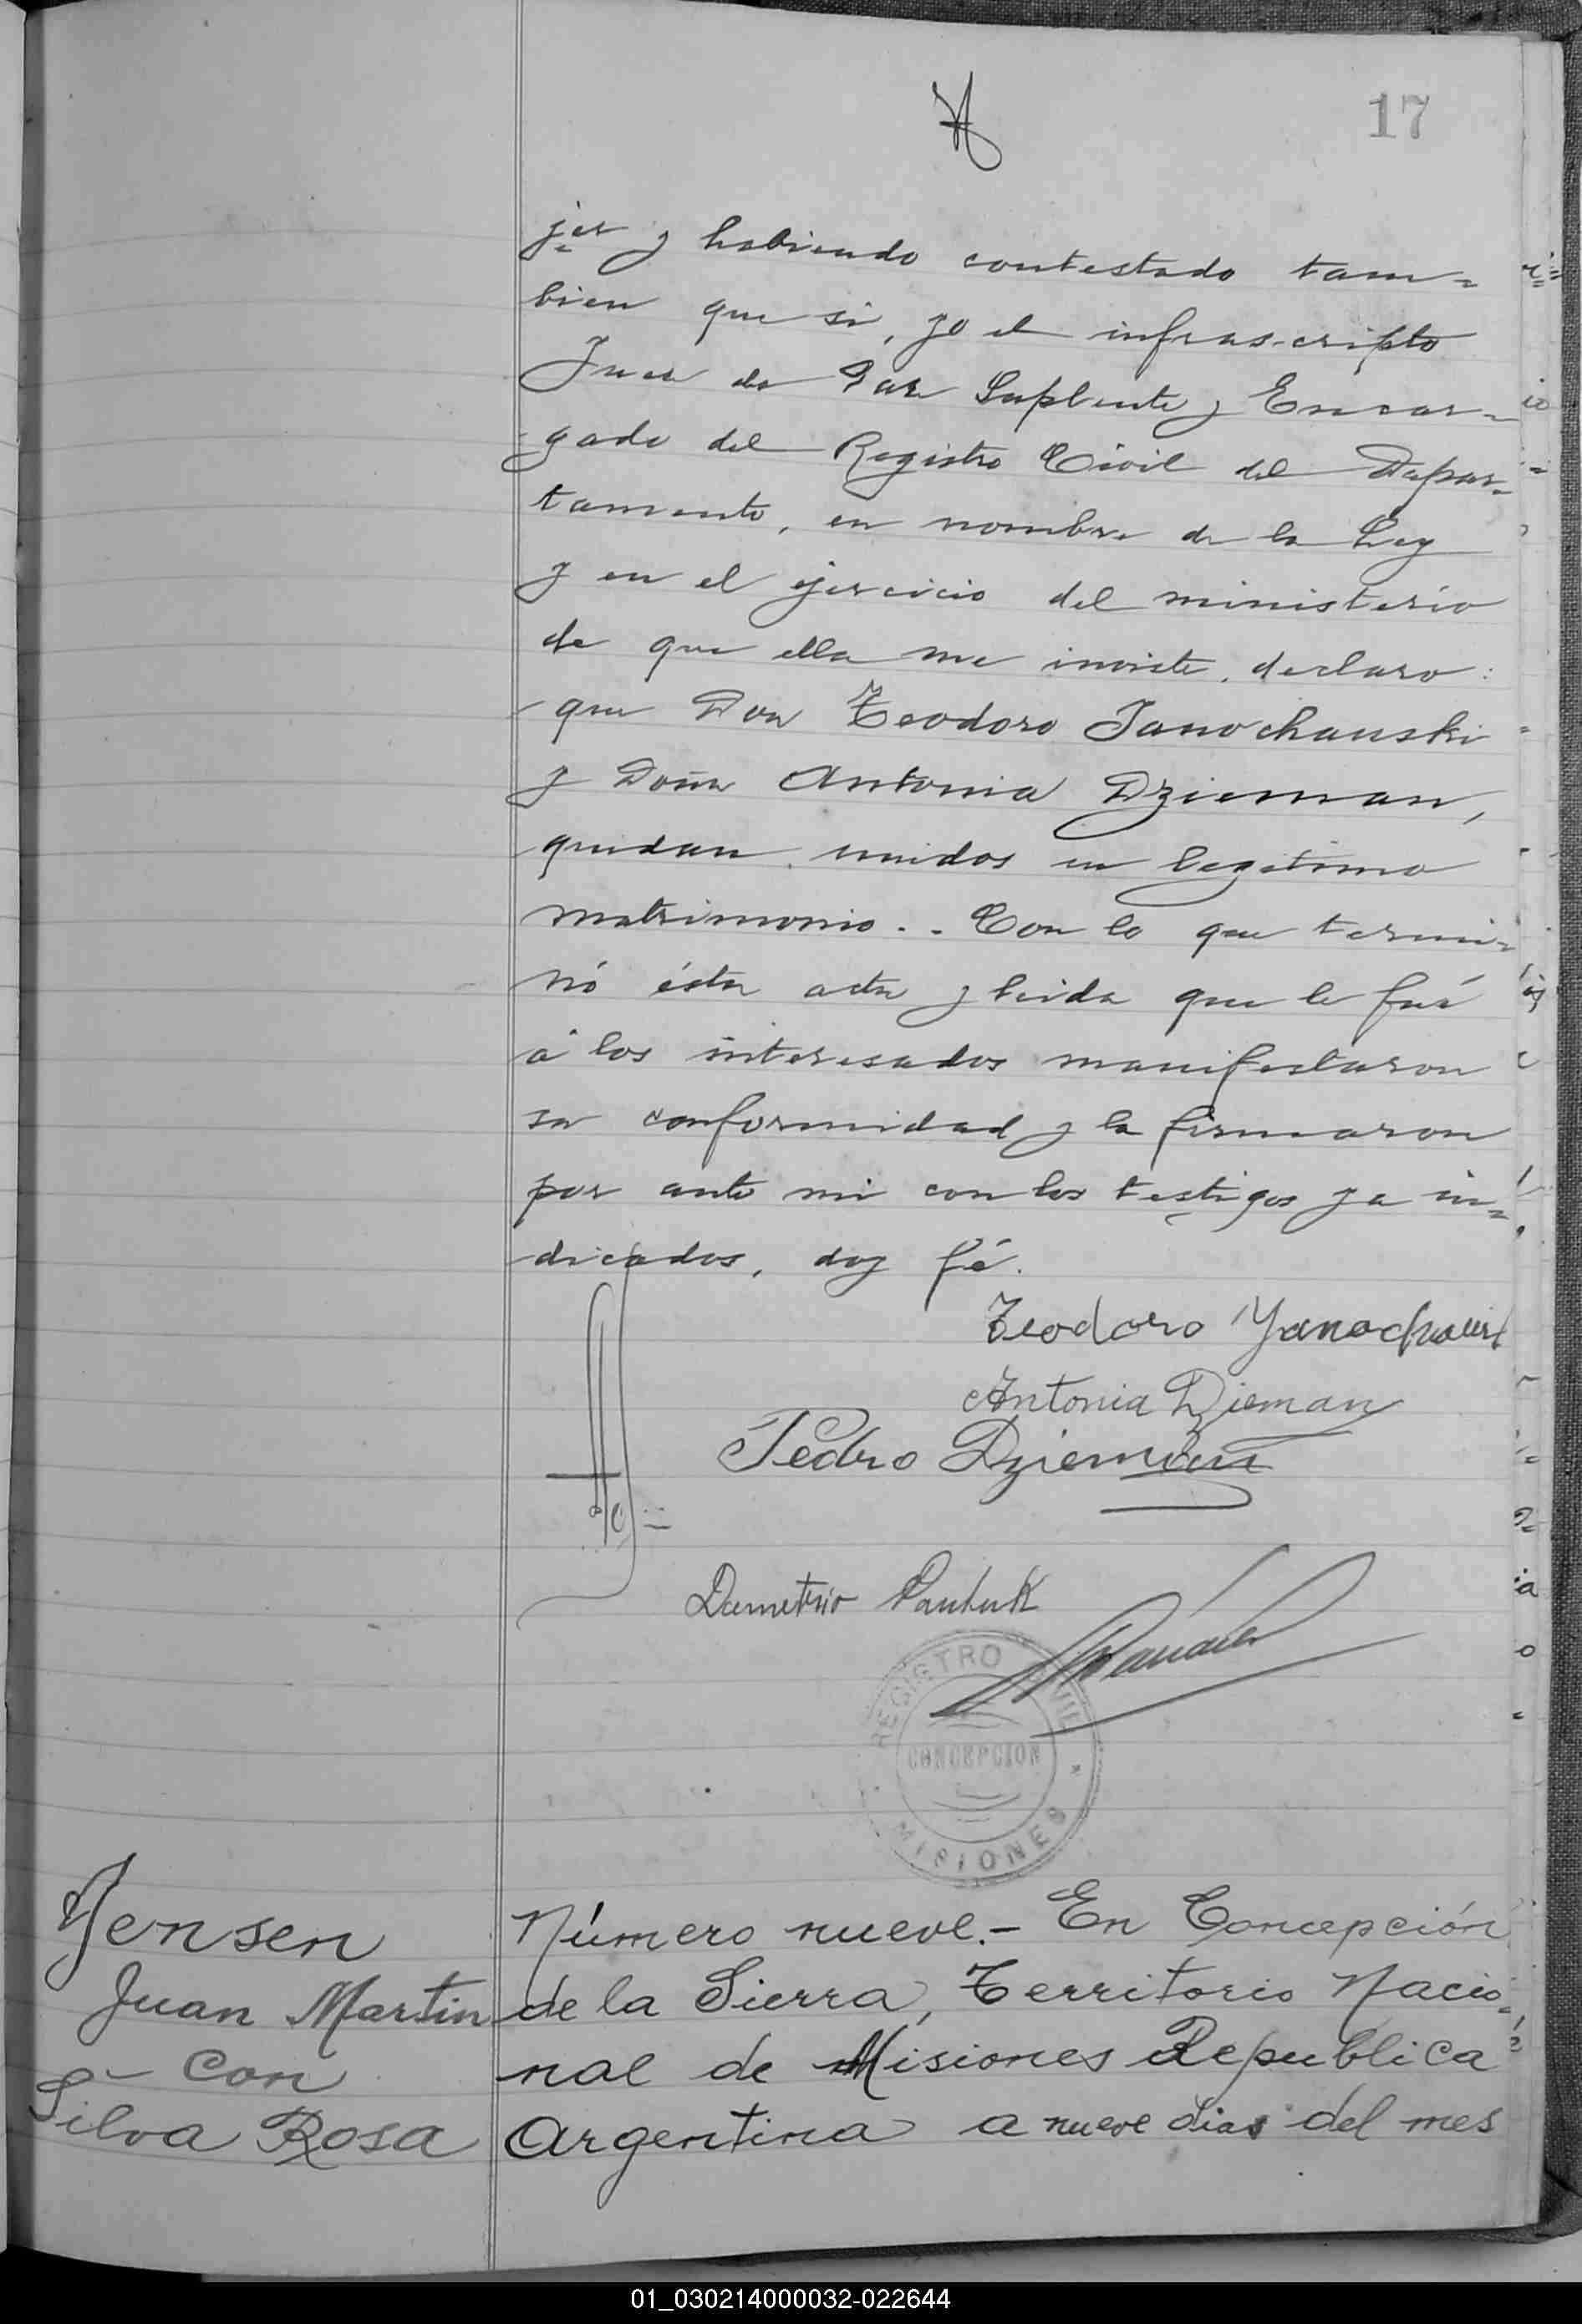 17
jer y habiendo contestado tam=
bien que si, yo el infras-cripto
Juez de Paz Suplente y Encar-
gado del Registro Civil del Depar-
tamento, en nombre de la Ley
y en el ejercicio del ministerio
de que ella me inviste, declaro:
que Don Teodoro Janochauski
y Doña Antonia Dzieman,
quedan unidos en legitimo
matrimonio.. Con lo que termi-
nó ésta acta y leida que le fué
á los interesados manifestaron
su conformidad y la firmaron
por ante mi con los testigos ya in=
dicados, doy fé.
Teodoro
Antonia Dzieman
Pedro Dzieman
Demetrio
REGISTRO CIVIL
CONCEPCION
MISIONES
Yensen
Juan Martin
- con
Silva Rosa
Número nueve.- En Concepción
de la Sierra, Territorio Nacio-
nal de Misiones Republica
Argentina a nueve dias del mes
01_030214000032-022644